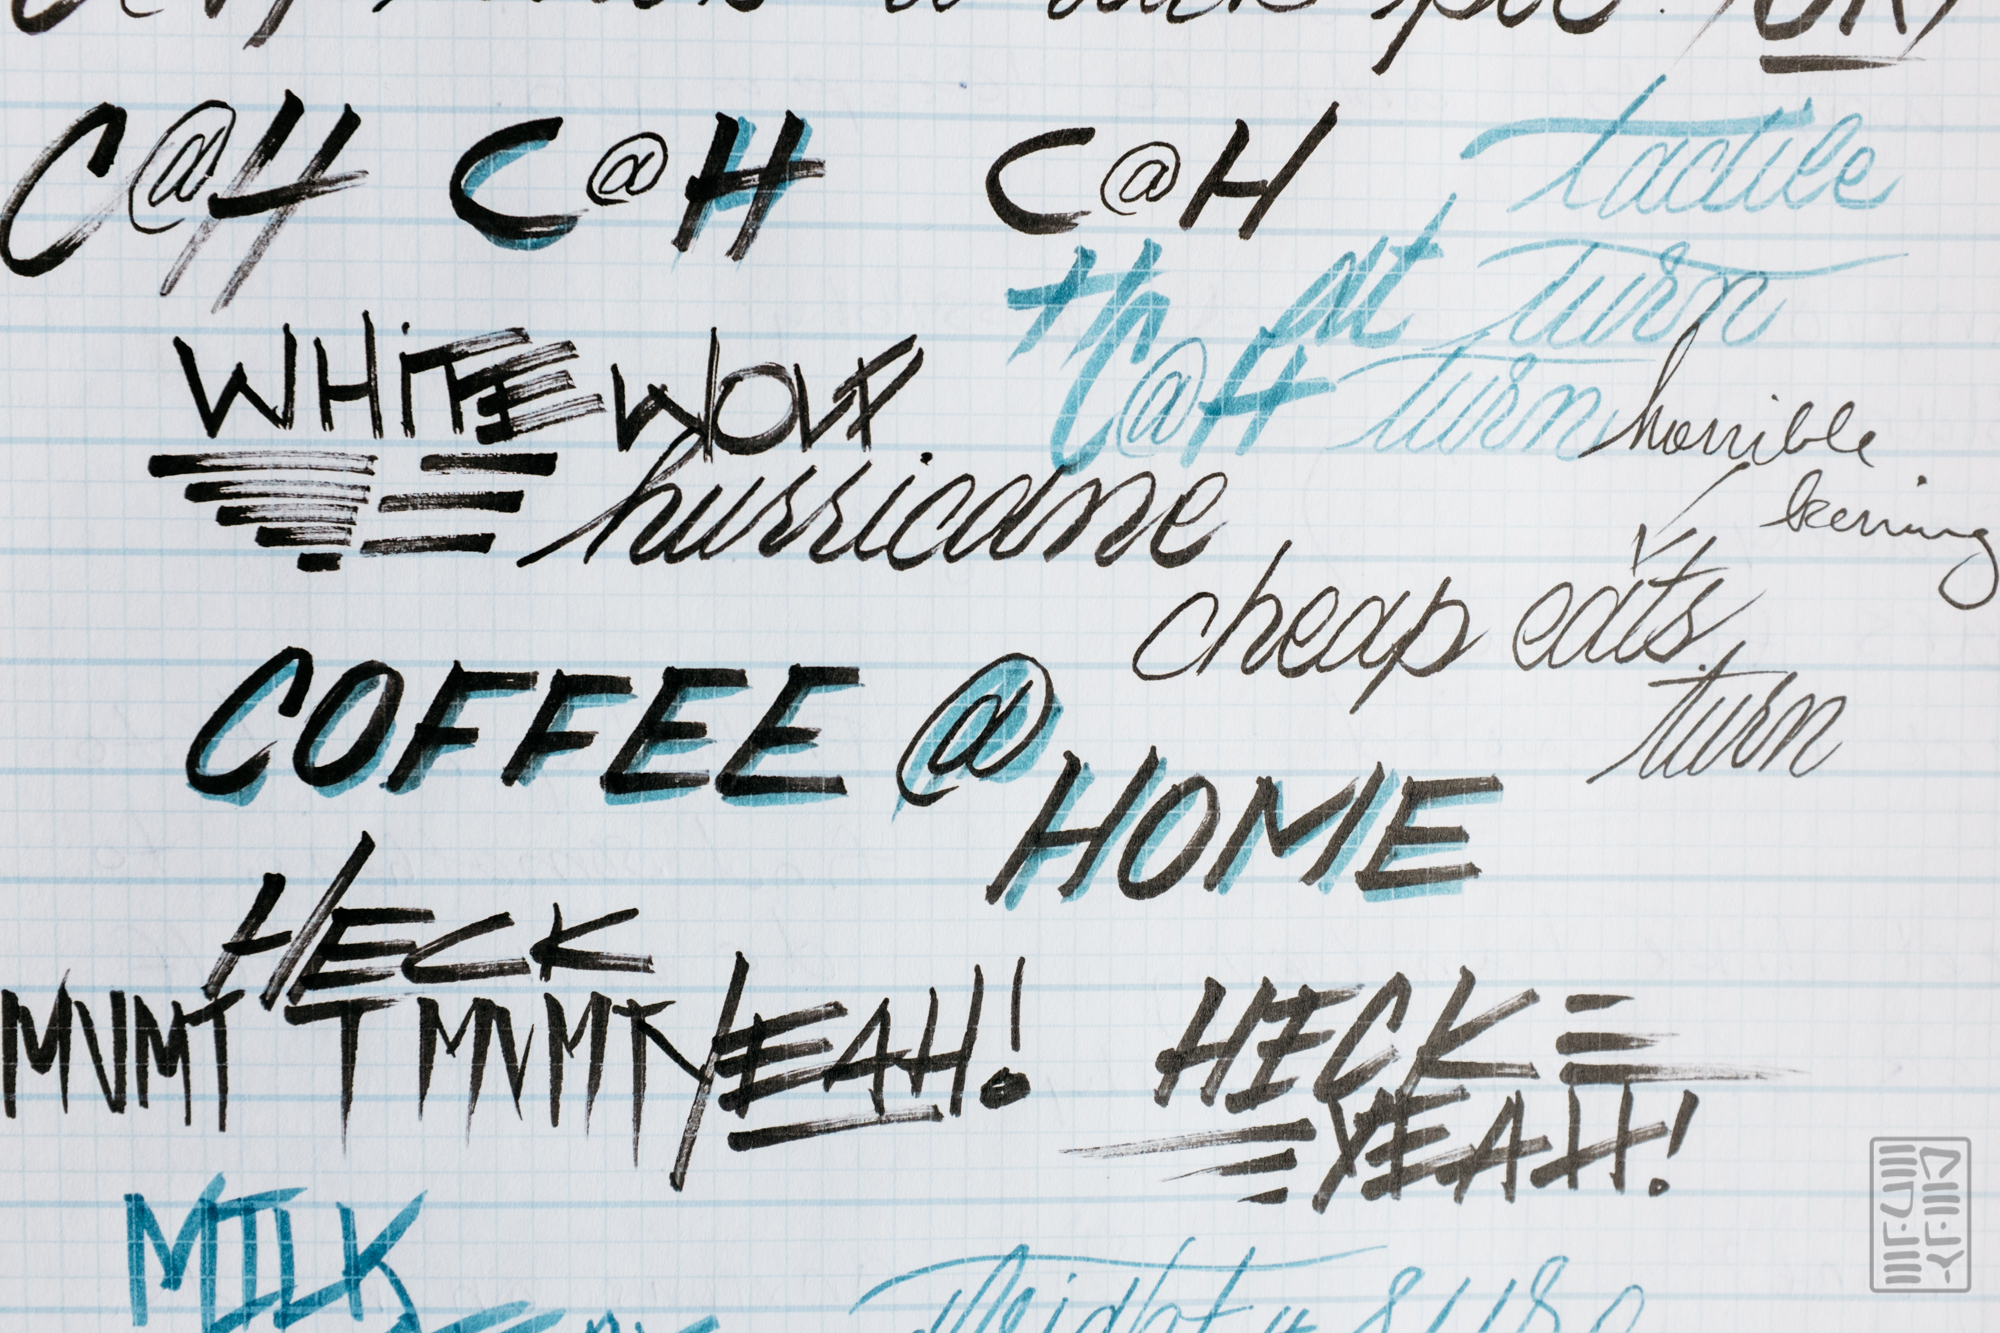 C@H C@H C@H tactile
th at turn
WHiTE WOLF C@H turn horrible
hurricane kerning
cheap eats
COFFEE @ turn
HOME
HECK
MVMT T MVMT YEAH! HECK
YEAH!
MILK